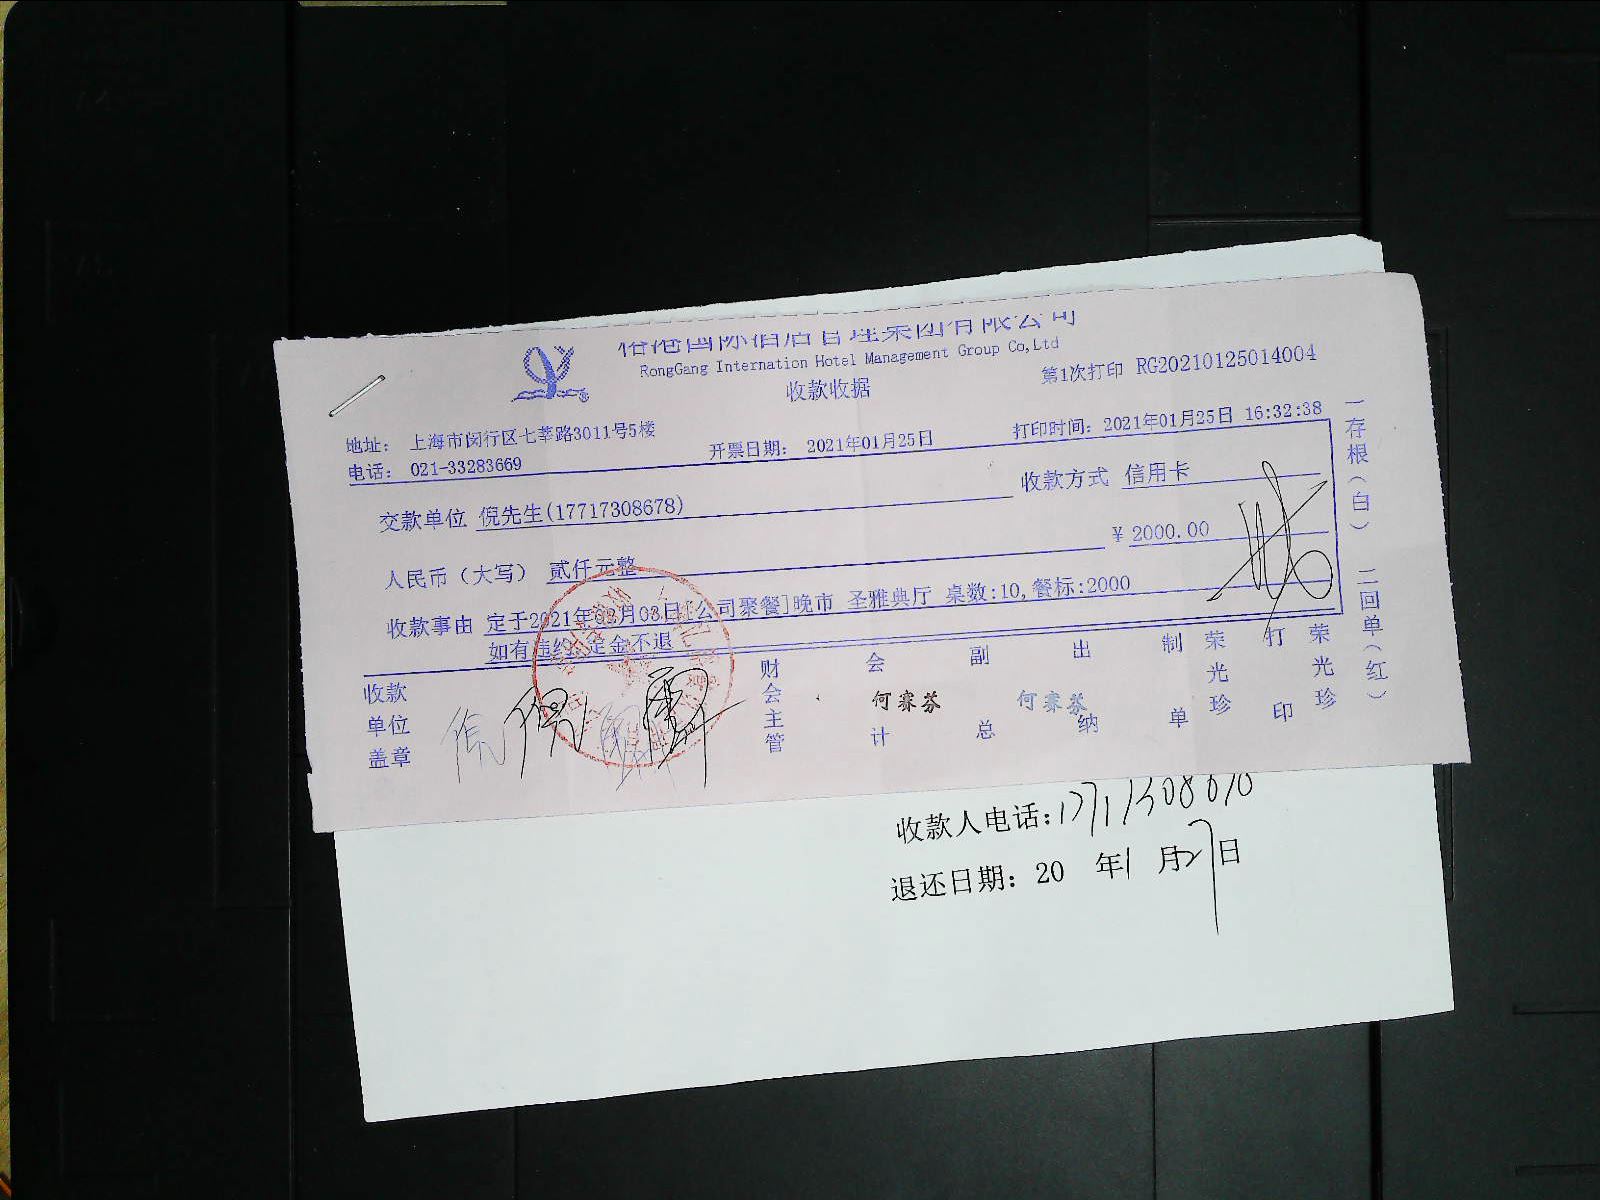 国际酒店管理集团有限公司
RongGang Internation Hotel Management Group Co,Ltd
收款收据
第1次打印 RG20210125014004
地址： 上海市闵行区七莘路3011号5楼
电话： 021-33283669
开票日期： 2021年01月25日
打印时间：2021年01月25日 16:32:38
交款单位 倪先生(17717308678)
收款方式 信用卡
人民币（大写） 贰仟元整
¥ 2000.00
收款事由 定于2021年02月03日[公司聚餐]晚市 圣雅典厅 桌数:10,餐标:2000
如有违约,定金不退
收款单位盖章
财会主管
会计 何赛芬
副总
出纳 何赛芬
制单 荣光珍
打印 荣光珍
一存根（白） 二回单（红）
收款人电话：17717308678
退还日期：20 年1月27日